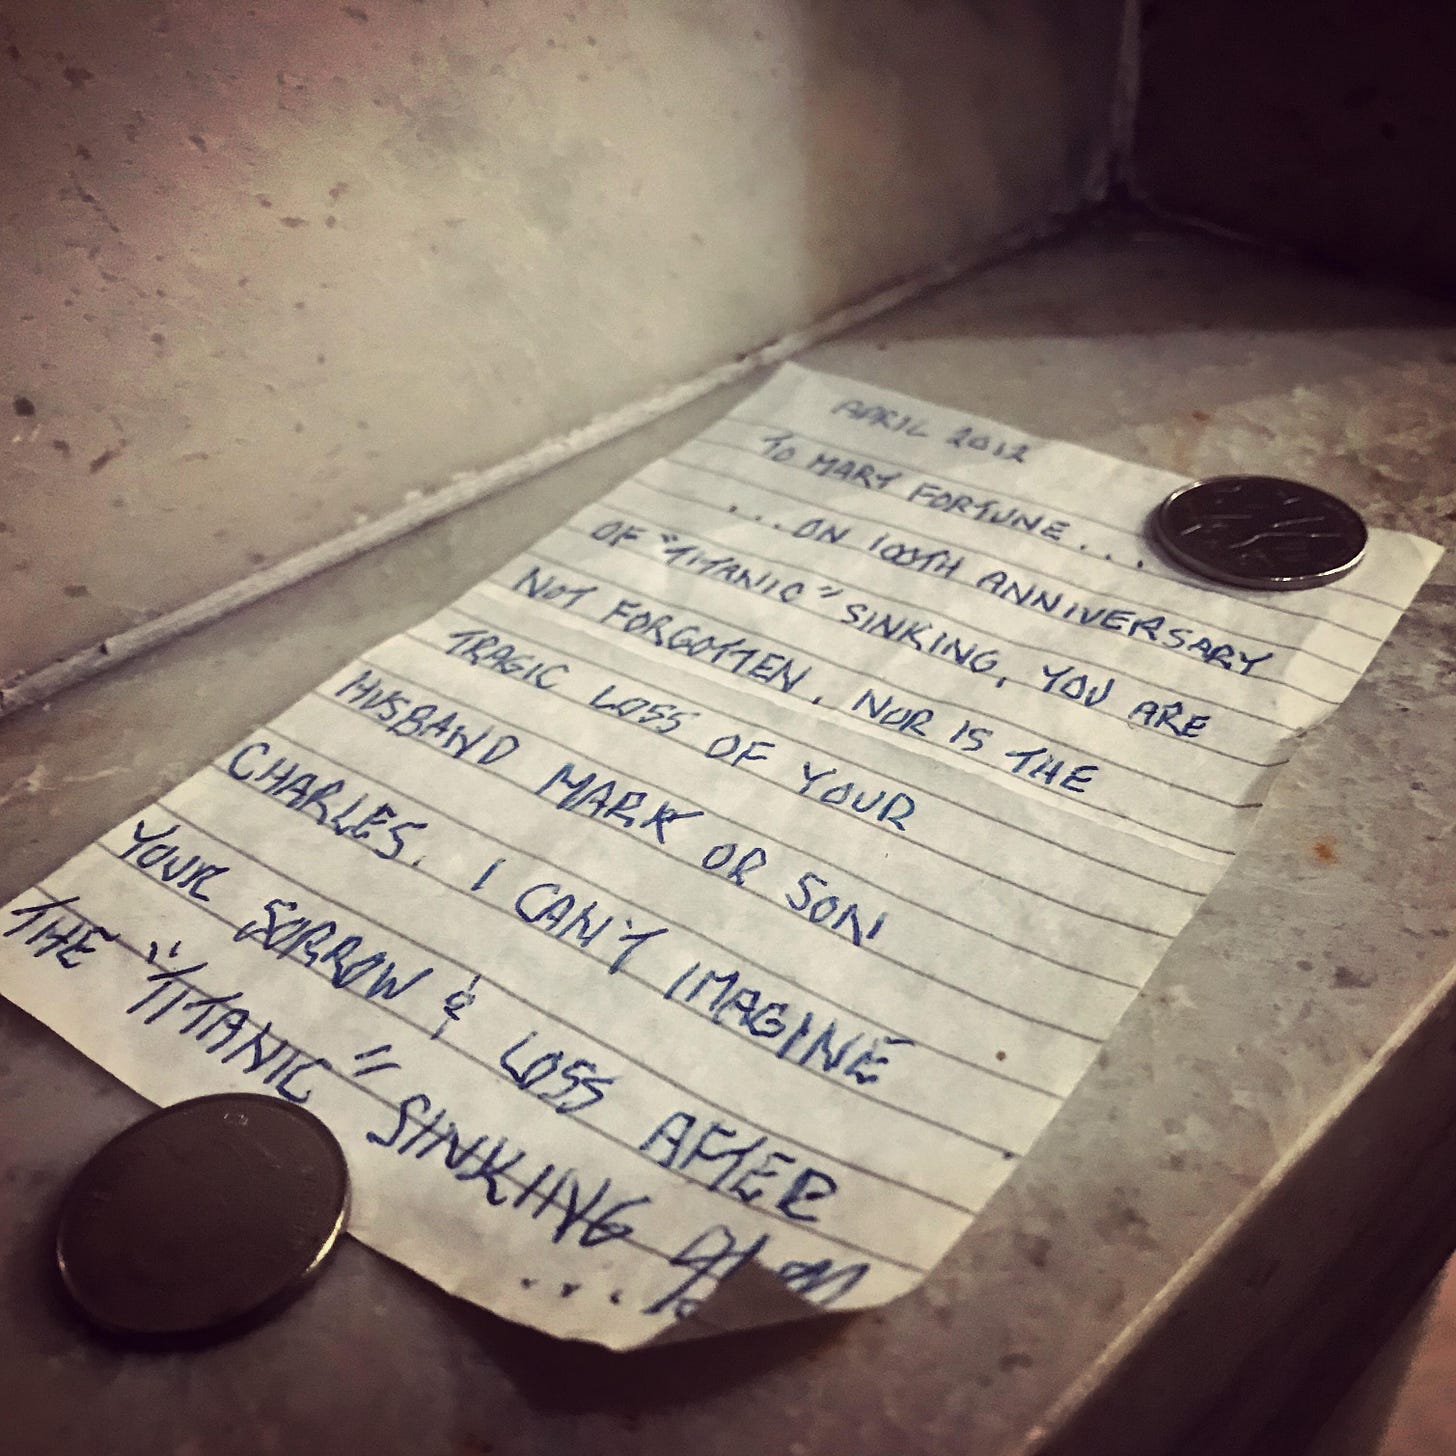 APRIL 2012
TO MARY FORTUNE...
...ON 100TH ANNIVERSARY
OF "TITANIC" SINKING, YOU ARE
NOT FORGOTTEN, NOR IS THE
TRAGIC LOSS OF YOUR
HUSBAND MARK OR SON
CHARLES. I CAN'T IMAGINE
YOUR SORROW & LOSS AFTER
THE "TITANIC" SINKING
...